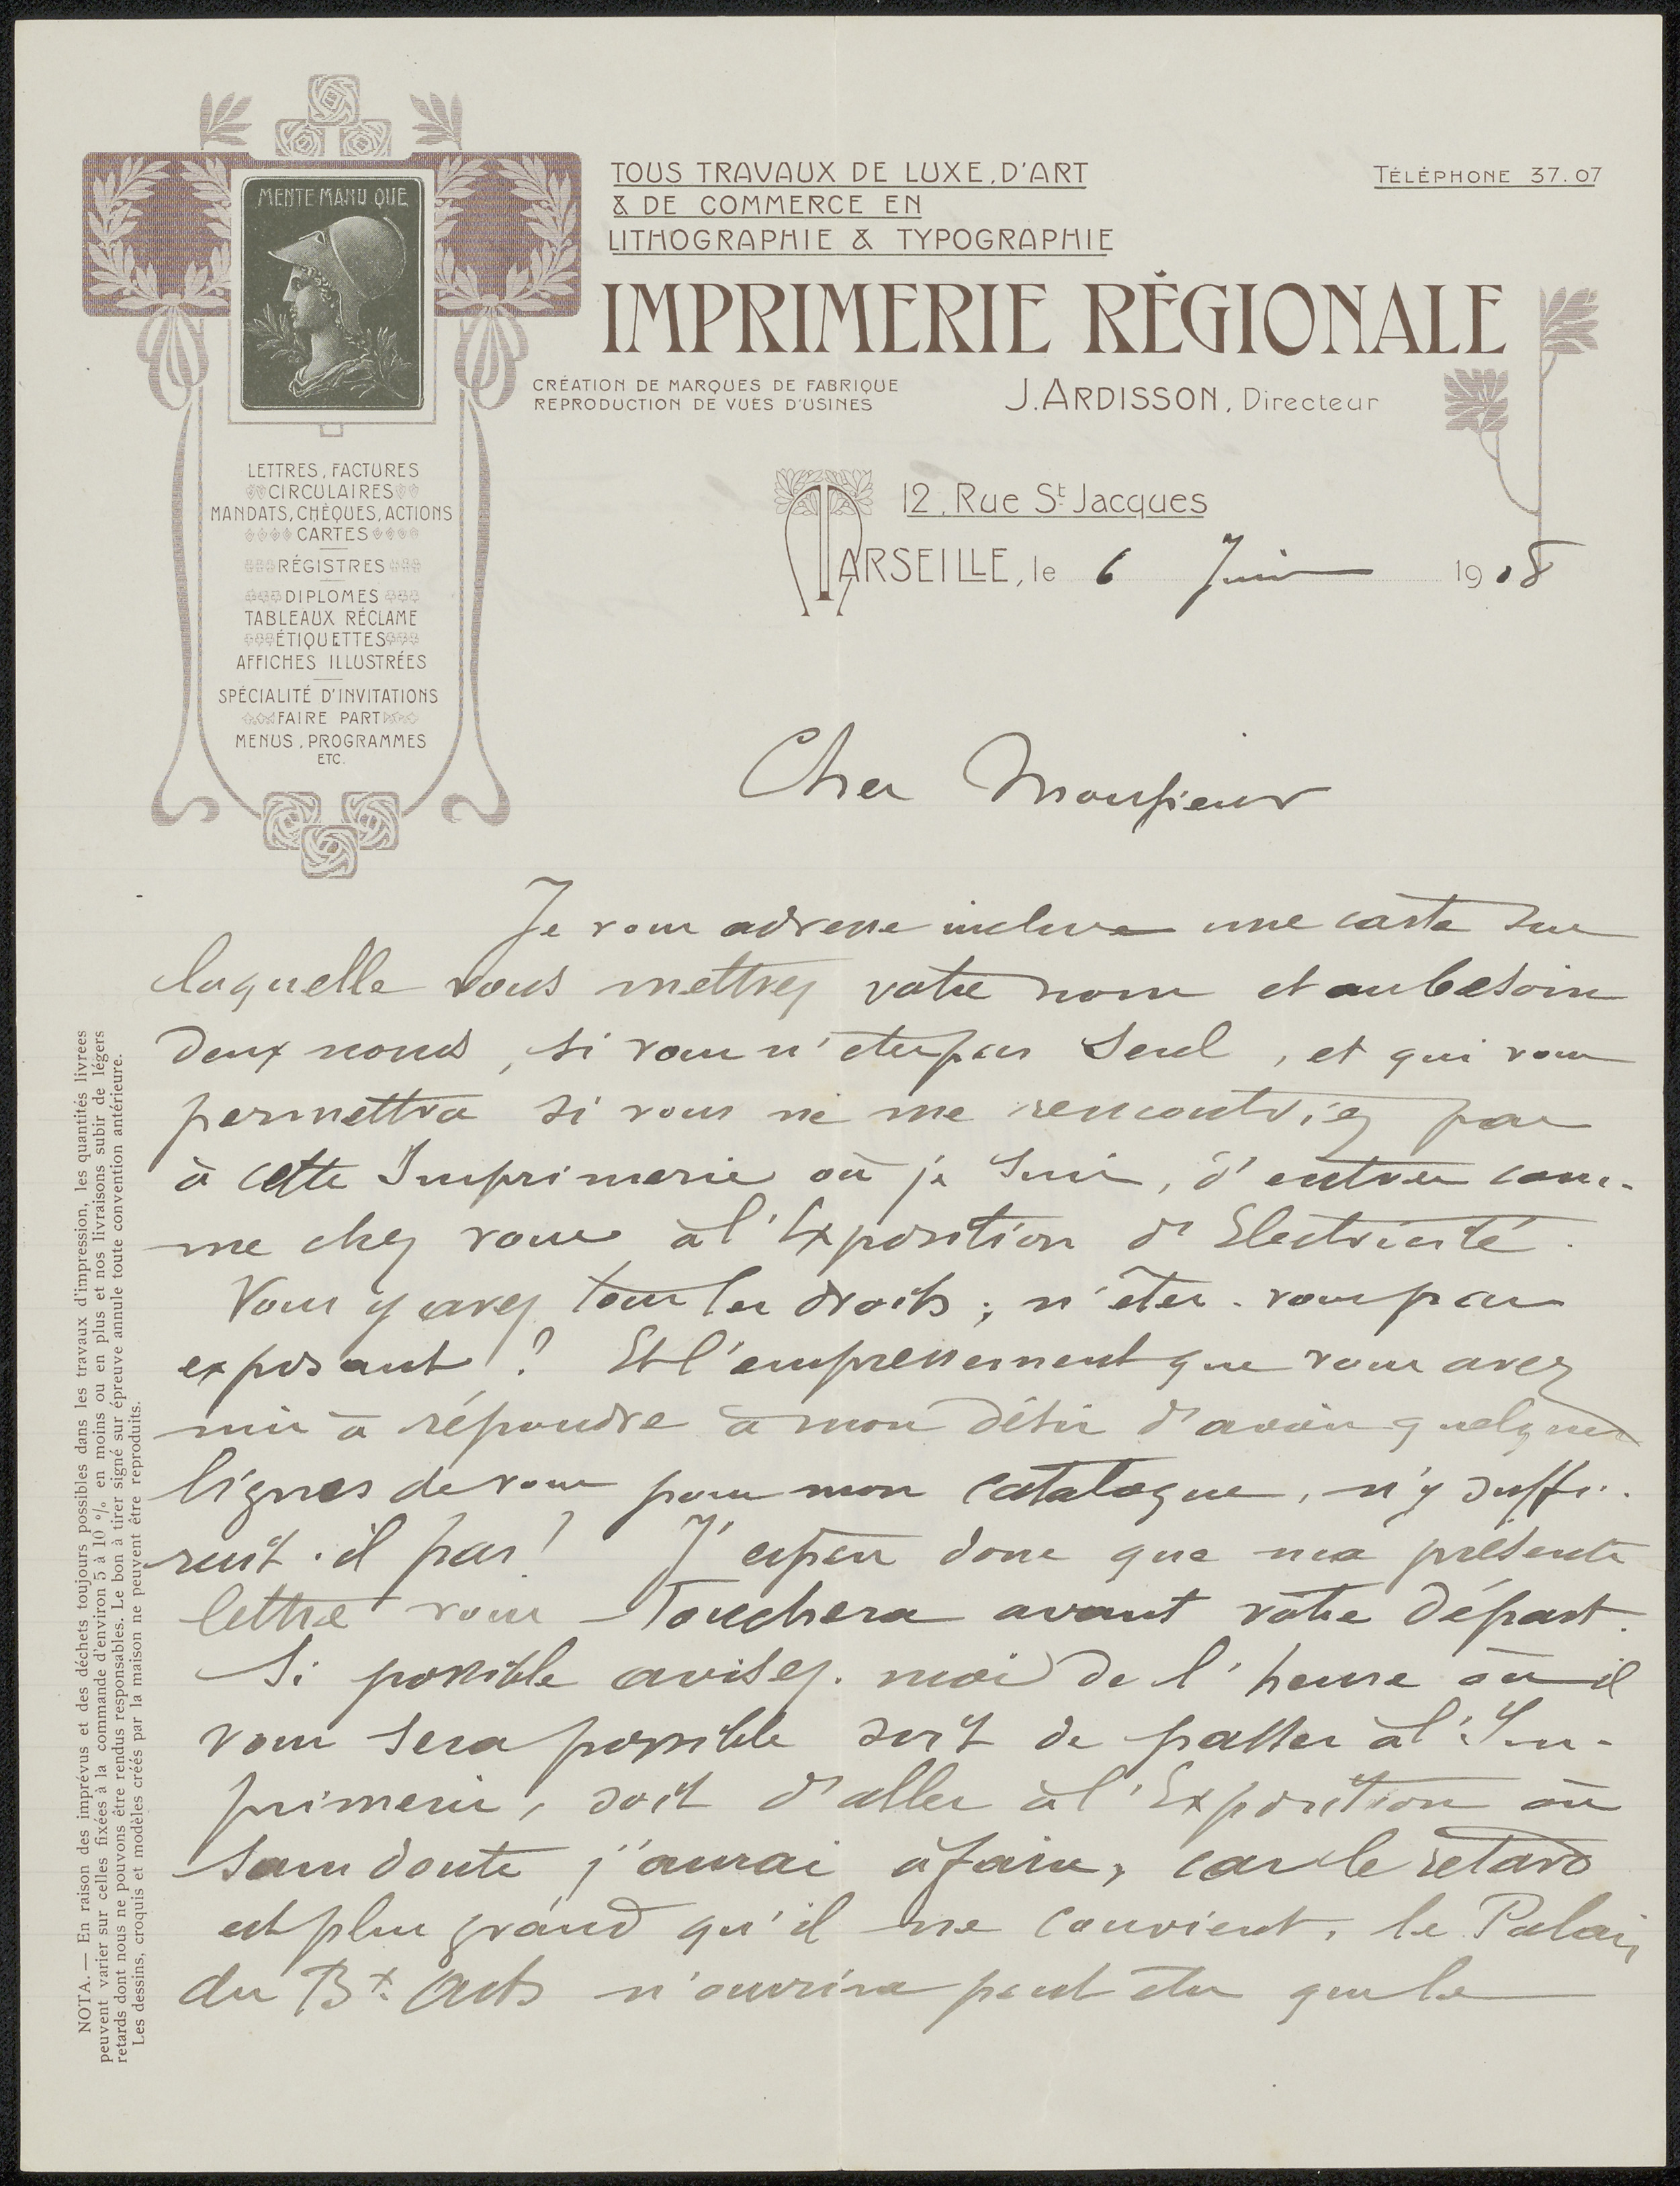 MENTE MANU QUE
TOUS TRAVAUX DE LUXE, D'ART
& DE COMMERCE EN
LITHOGRAPHIE & TYPOGRAPHIE
TÉLÉPHONE 37.07
IMPRIMERIE RÉGIONALE
CRÉATION DE MARQUES DE FABRIQUE
REPRODUCTION DE VUES D'USINES
J. ARDISSON, Directeur
LETTRES, FACTURES
CIRCULAIRES
MANDATS, CHÈQUES, ACTIONS
CARTES
RÉGISTRES
DIPLOMES
TABLEAUX RÉCLAME
ÉTIQUETTES
AFFICHES ILLUSTRÉES
SPÉCIALITÉ D'INVITATIONS
FAIRE PART
MENUS, PROGRAMMES
ETC.
12, Rue St Jacques
MARSEILLE, le 6 Juin 1908
Cher Monsieur
Je vous adresse incluse une carte sur
laquelle vous mettrez votre nom et au besoin
deux noms, si vous n'etes pas seul, et qui vous
permettra si vous ne me rencontriez pas
à cette Imprimerie où je suis, d'entrer com-
me chez vous à l'Exposition d'Electricité.
Vous y avez tous les droits; n'êtes-vous pas
exposant? Et l'empressement que vous avez
mis à répondre à mon désir d'avoir quelques
lignes de vous pour mon catalogue, n'y suffi-
rait-il pas! J'espère donc que ma présente
lettre vous touchera avant votre départ.
Si possible avisez-moi de l'heure où il
vous sera possible soit de passer à l'Im-
primerie, soit d'aller à l'Exposition où
sans doute j'aurai à faire, car le retard
est plus grand qu'il ne convient, le Palais
du Bx Arts n'ouvrira peut etre que le
NOTA. — En raison des imprévus et des déchets toujours possibles dans les travaux d'impression, les quantités livrées
peuvent varier sur celles fixées à la commande d'environ 5 à 10 % en moins ou en plus et nos livraisons subir de légers
retards dont nous ne pouvons être rendus responsables. Le bon à tirer signé sur épreuve annule toute convention antérieure.
Les dessins, croquis et modèles créés par la maison ne peuvent être reproduits.